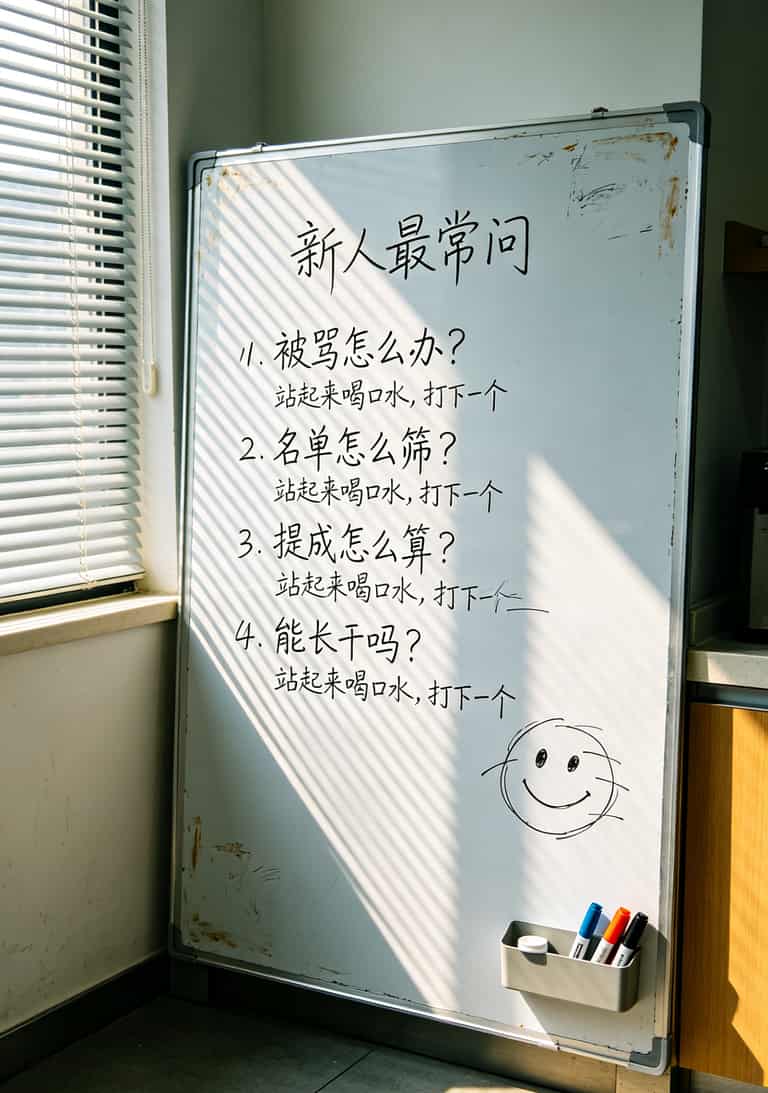 新人最常问
1. 被骂怎么办？
站起来喝口水，打下一个
2. 名单怎么筛？
站起来喝口水，打下一个
3. 提成怎么算？
站起来喝口水，打下一个
4. 能长干吗？
站起来喝口水，打下一个